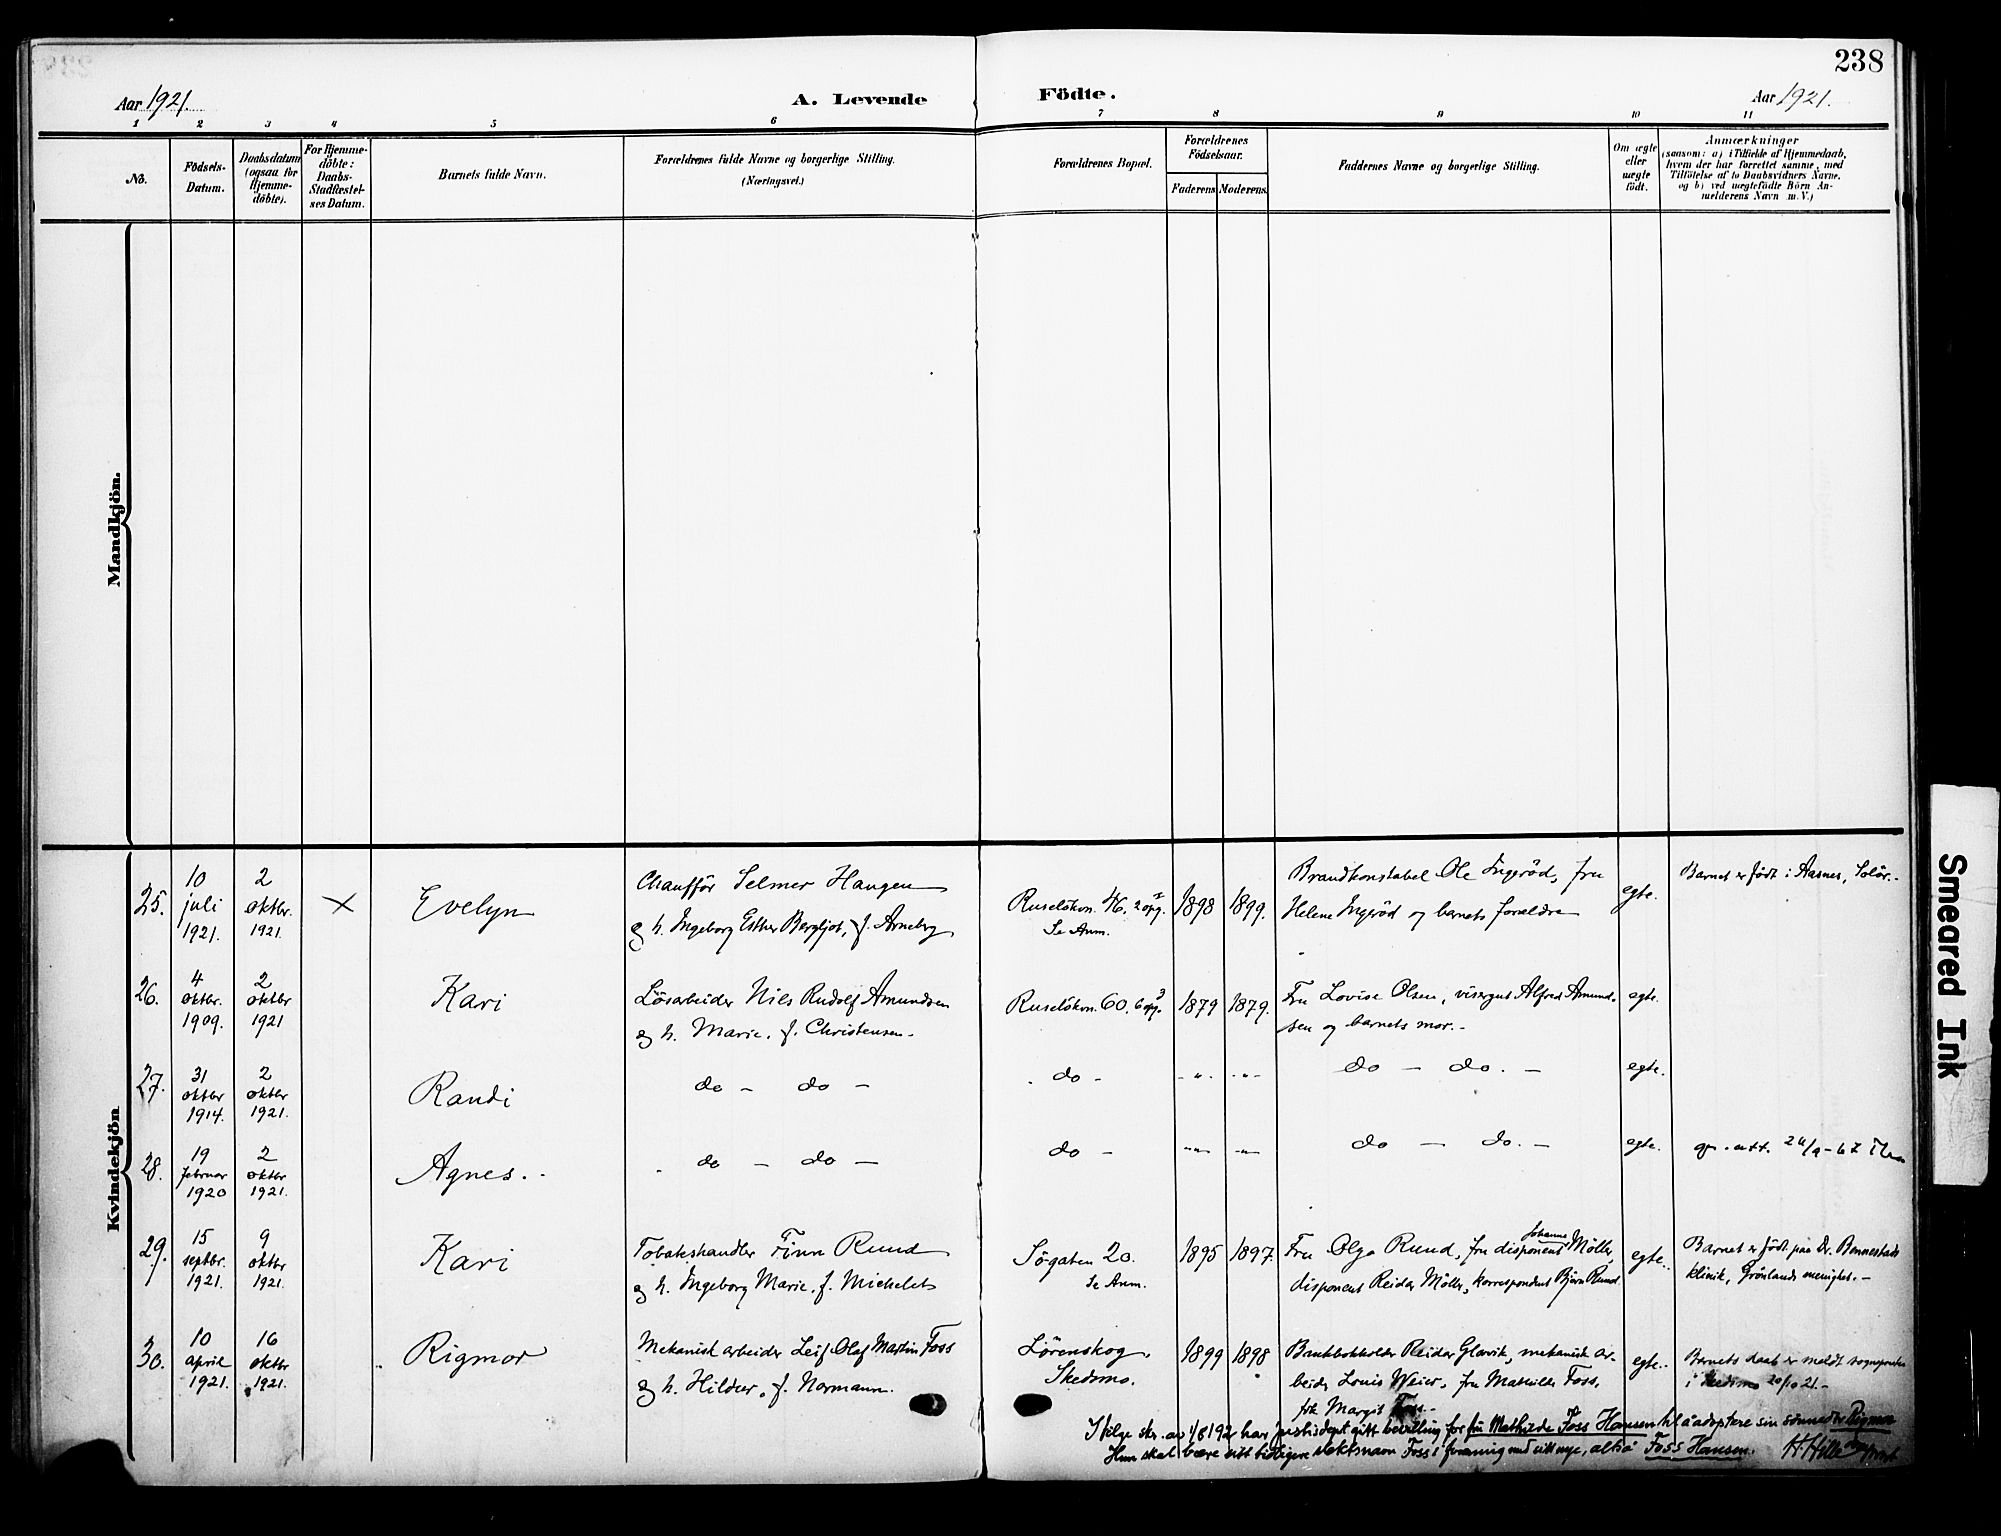 238
Aar 1921.
A. Levende Födte.
Aar 1921.
1 2 3 4 5 6 7 8 9 10 11
No.
Födsels-
Datum.
Daabsdatum
(ogsaa for
Hjemme-
döbte).
For Hjemme-
döbte:
Daabs-
Stadfæstel-
ses Datum.
Barnets fulde Navn.
Forældrenes fulde Navne og borgerlige Stilling.
(Næringsvei.)
Forældrenes Bopæl.
Forældrenes
Födselsaar.
Faderens Moderens.
Faddernes Navne og borgerlige Stilling.
Om ægte
eller
uægte
født.
Anmærkninger
(saasom: a) i Tilfælde af Hjemmedaab,
hvem der har forrettet samme, med
Tilföielse af to Daabsvidners Navne,
og b) ved uægtefödte Börn An-
melderens Navn m. V.)
Mandkjön.
Kvindekjön
25.
10
juli
1921.
2
oktbr.
1921.
×
Evelyn
Chaufför Selmer Haugen
og h. Ingeborg Esther Bergljot, f. Arneberg
Ruselökvn. 46, 2 opg.
Se Anm.
1898 1899.
Brandkonstabel Ole Ingeröd, fru
Helene Ingeröd og barnets forældre
egte.
Barnet er født i Aasnes, Solör.
26.
4
oktbr.
1909.
2
oktbr
1921
Kari
Lösarbeider Nils Rudolf Amundsen
og h. Marie, f. Christensen.
Ruselökvn. 60, 6 opg. 3
1879 1879.
Fru Lovise Olsen, visergut Alfred Amund-
sen og barnets mor.
egte.
27.
31
oktbr
1914.
2
oktbr
1921.
Randi
do – do –
do –
- " - - " -
do – do. –
egte.
28.
19
februar
1920
2
oktbr
1921.
Agnes.
do – do –
do –
- " - - " -
do – do. –
egte.
29.
15
septbr.
1921.
9
oktbr
1921.
Kari
Tobakshandler Finn Rund
og h. Ingeborg Marie, f. Michelets
Sögaten 20.
Se Anm.
1895 1897.
Fru Olga Rund, fru disponent Johanne Möller,
disponent Reidar Möller, korrespondent Björn Rund.
egte.
Barnet er født paa Dr. Bennestads
klinik, Grönlands menighet.
30.
10
april
1921.
16
oktbr
1921.
Rigmor
Mekanisk arbeider Leif Olaf Martin Foss
og h. Hildur, f. Normann.
Lörenskog,
Skedsmo.
1899 1898
Bankbokholder Reidar Glavik, mekanisk ar-
beider Louis Weier, fru Mathilde Foss,
frk Margit Foss.
egte.
Barnets daab er meldt sognepresten
i Skedsmo 20/10 21.
har justisdept. gitt bevilling for fru Mathilde Foss Hansen til å adoptere sin Rigmor
Hun skal bære sitt tidligere slektsnavn Foss i forening med sitt nye, altså Foss Hansen. H. Hille
Smeared Ink